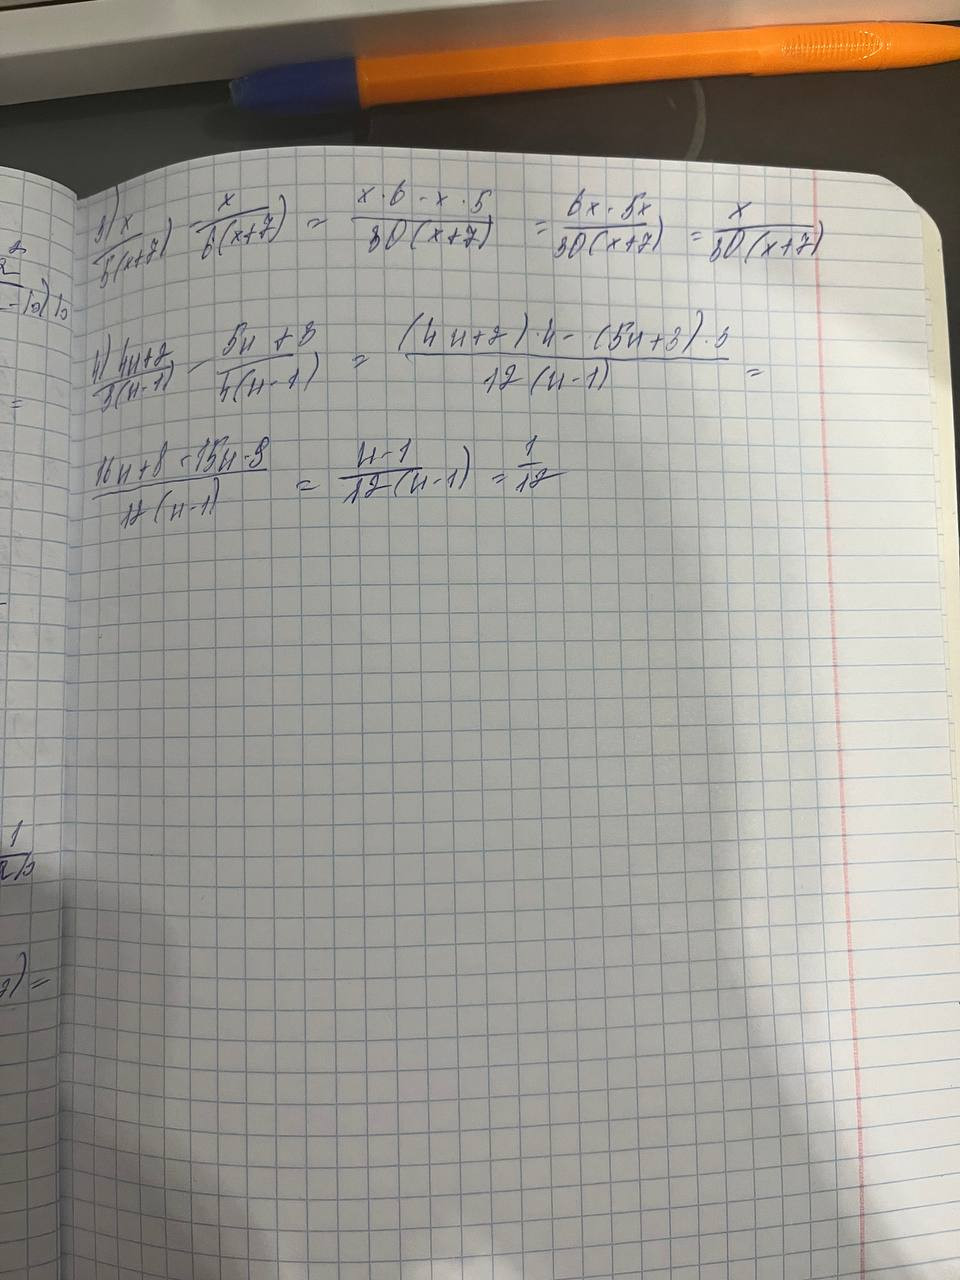 3) x/5(x+7) - x/6(x+7) = x·6-x·5/30(x+7) = 6x-5x/30(x+7) = x/30(x+7)
4) 4и+2/3(и-1) - 5и+3/4(и-1) = (4и+2)·4-(5и+3)·3/12(и-1) =
16и+8-15и-9/12(и-1) = и-1/12(и-1) = 1/12